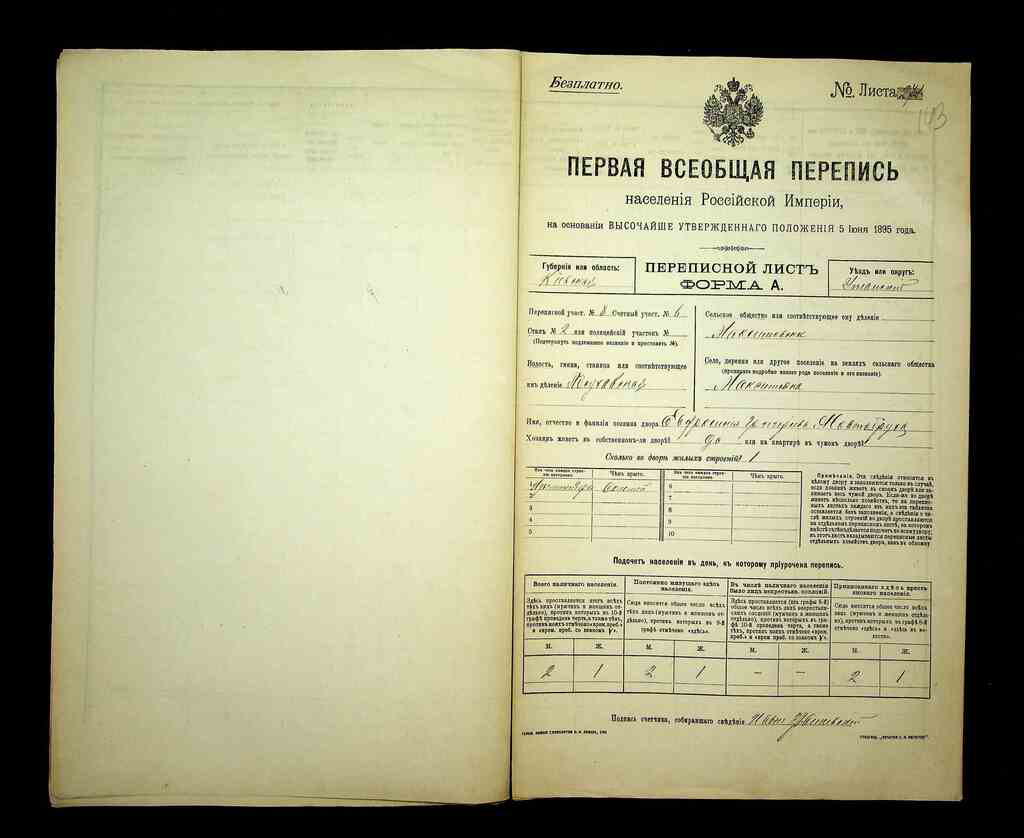 Безплатно.
№ Листа
143
ПЕРВАЯ ВСЕОБЩАЯ ПЕРЕПИСЬ
населенія Россійской Имперіи,
на основаніи ВЫСОЧАЙШЕ УТВЕРЖДЕННАГО ПОЛОЖЕНІЯ 5 Іюня 1895 года.
Губернія или область:
Кіевская
ПЕРЕПИСНОЙ ЛИСТЪ
ФОРМА А.
Уѣздъ или округъ:
Уманскій
Переписной участ. № 3 Счетный участ. № 6
Станъ № 2 или полицейскій участокъ №
(Подчеркнуть надлежащее названіе и проставить №).
Волость, гмина, станица или соотвѣтствующее
имъ дѣленіе
Сельское общество или соотвѣтствующее ему дѣленіе
Село, деревня или другое поселеніе на земляхъ сельскаго общества
(прописать подробно какого рода поселеніе и его названіе).
Имя, отчество и фамилія хозяина двора Евфросинія
Хозяинъ живетъ въ собственномъ-ли дворѣ? да или на квартирѣ въ чужомъ дворѣ?
Сколько во дворѣ жилыхъ строеній? 1
Изъ чего каждое строеніе построено. Чѣмъ крыто. Изъ чего каждое строеніе построено. Чѣмъ крыто.
Соломой 6
2 7
3 8
4 9
5 10
Примѣчаніе. Эти свѣдѣнія относятся къ
цѣлому двору и заполняются только въ случаѣ,
если хозяинъ живетъ въ своемъ дворѣ или занимаетъ
весь чужой дворъ. Если-же во дворѣ
живетъ нѣсколько хозяйствъ, то на переписныхъ
листахъ каждаго изъ нихъ эта табличка
оставляется безъ заполненія, а свѣдѣнія о числѣ
жилыхъ строеній во дворѣ проставляются
на отдѣльномъ переписномъ листѣ, на которомъ
Подсчетъ населенія въ день, къ которому пріурочена перепись.
Всего наличнаго населенія.
Здѣсь проставляется итогъ всѣхъ
тѣхъ лицъ (мужчинъ и женщинъ отдѣльно),
противъ которыхъ въ 10-й
графѣ проведена черта, а также тѣхъ,
противъ коихъ отмѣчено «врем. преб.»
и «врем. преб. со знакомъ V».
Постоянно живущаго здѣсь
населенія.
Сюда вносится общее число всѣхъ
тѣхъ лицъ (мужчинъ и женщинъ отдѣльно),
противъ которыхъ въ 9-й
графѣ отмѣчено «здѣсь».
Въ числѣ наличнаго населенія
было лицъ некрестьян. сословій.
Здѣсь проставляется (изъ графы 4-й)
общее число всѣхъ лицъ некрестьянскихъ
сословій (мужчинъ и женщинъ
отдѣльно), противъ которыхъ въ
графѣ 10-й проведена черта, а также
тѣхъ, противъ коихъ отмѣчено «врем.
преб.» и «врем. преб. со знакомъ V».
Приписаннаго здѣсь крестьянскаго населенія.
Сюда вносится общее число всѣхъ
лицъ (мужчинъ и женщинъ отдѣльно),
противъ которыхъ въ графѣ 8-й
отмѣчено «здѣсь» и «здѣсь въ волости».
М. Ж. М. Ж. М. Ж. М. Ж.
2 1 2 1 — — 2 1
Подпись счетчика, собиравшаго свѣдѣнія Иванъ